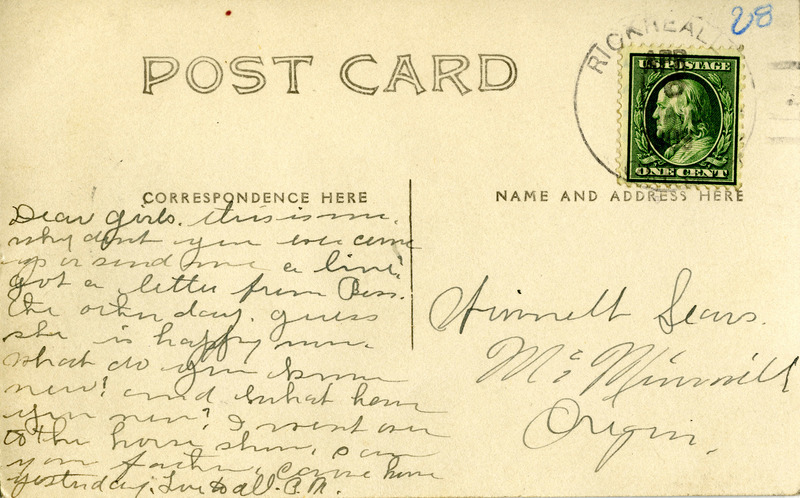 28
RICKREALL
APR
U.S. POSTAGE
ONE CENT
POST CARD
CORRESPONDENCE HERE
Dear girls. this is me.
why dont you ever come
up or send me a line.
got a letter from Bess.
the other day. guess
she is happy now.
what do you know
new? and what have
you new? I went over
to the horse show, saw
your father, Came home
yesterday. Love to all. P.M.
NAME AND ADDRESS HERE
Sears.
Mc Minnvill
Oregon.